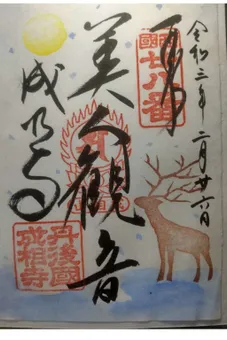 令和三年二月廿六日
奉
西國廿八番
美人観音
成相寺
丹後國
成相寺